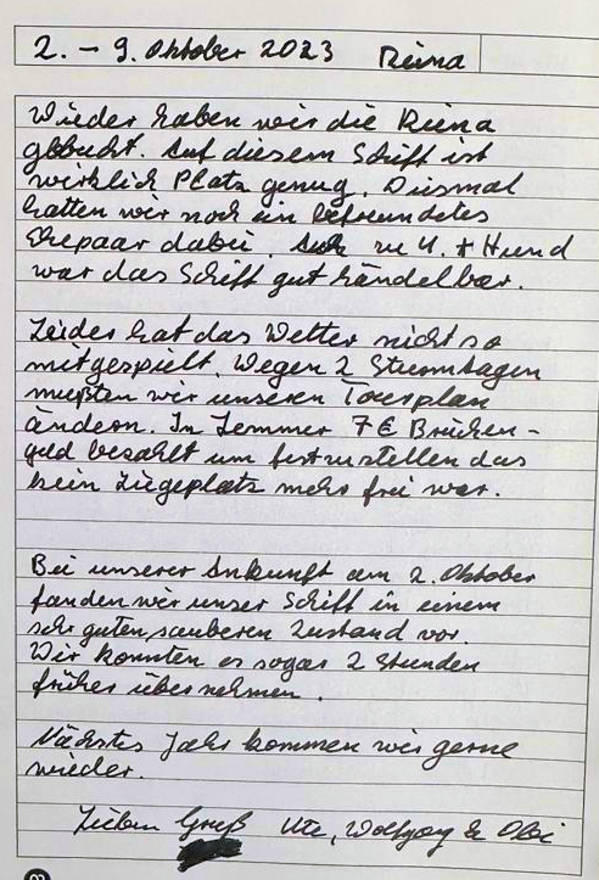 2. – 9. Oktober 2023 Reina
Wieder haben wir die Reina
gebucht. Auf diesem Schiff ist
wirklich Platz genug. Diesmal
hatten wir noch ein befreundetes
Ehepaar dabei. Auch zu 4. + Hund
war das Schiff gut händelbar.
Leider hat das Wetter nicht so
mitgespielt. Wegen 2 Sturmtagen
mußten wir unseren Tourplan
ändern. In Lemmer 7 € Brücken-
geld bezahlt um festzustellen das
kein Liegeplatz mehr frei war.
Bei unserer Ankunft am 2. Oktober
fanden wir unser Schiff in einem
sehr guten, sauberen Zustand vor.
Wir konnten es sogar 2 Stunden
früher übernehmen.
Nächstes Jahr kommen wir gerne
wieder.
Lieben Gruß Ute, Wolfgang &